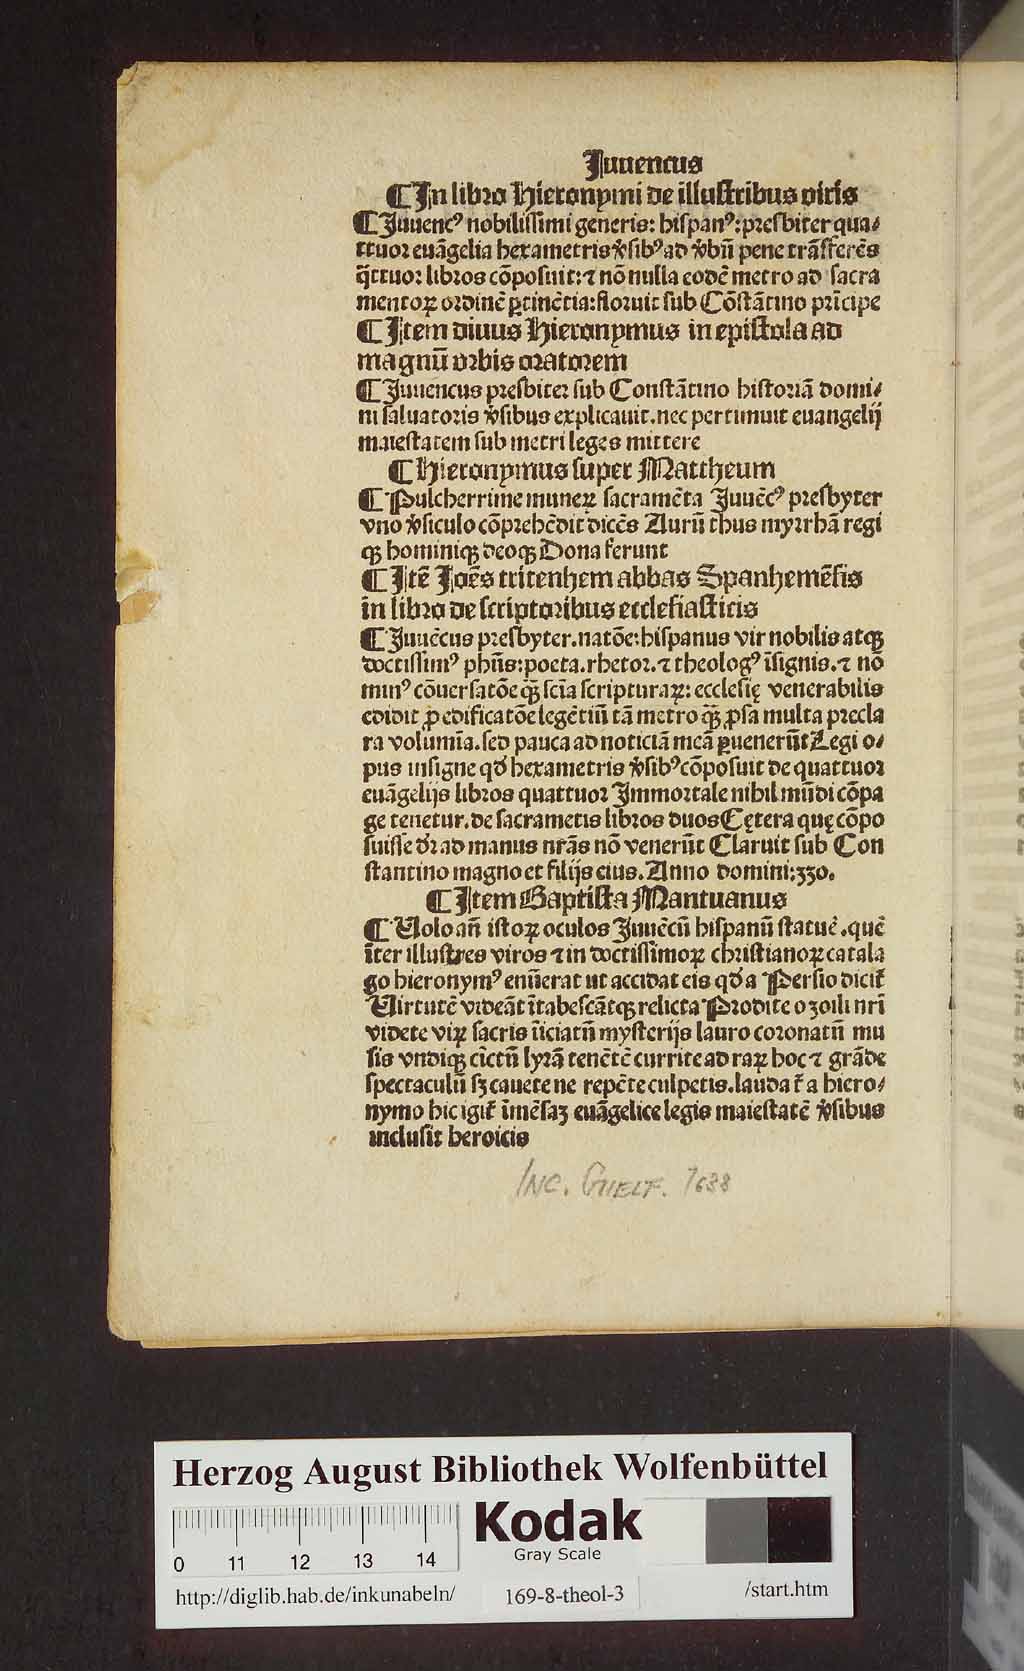 Juuencus
¶ In libro Hieronymi de illustribus viris
¶ Juuencꝰ nobilissimi generis: hispanꝰ: presbiter qua⸗
ttuor euãgelia hexametris v̾sibꝰ ad v̾bũ pene trãsferẽs
q̃ttuor libros cõposuit: ⁊ nõ nulla eodẽ metro ad sacra
mentoꝝ ordinẽ ꝑtinẽtia: floruit sub Cõstãtino prĩcipe
¶ Item diuus Hieronymus in epistola ad
magnũ orbis oratorem
¶ Juuencus presbiter sub Constãtino historiã domi⸗
ni saluatoris v̾sibus explicauit. nec pertimuit euangelij
maiestatem sub metri leges mittere
¶ Hieronymus super Mattheum
¶ Pulcherrime muneꝝ sacramẽta Juuẽcꝰ presbyter
vno v̾siculo cõprehẽdit dicẽs Aurũ thus myrrhã regi
qꝫ hominiqꝫ deoqꝫ Dona ferunt
¶ Itẽ Joẽs tritenhem abbas Spanhemẽsis
in libro de scriptoribus ecclesiasticis
¶ Juuẽcus presbyter. natõe: hispanus vir nobilis atqꝫ
doctissimꝰ phũs: poeta. rhetor. ⁊ theologꝰ ĩsignis. ⁊ nõ
minꝰ cõuersatõe qꝫ̃ scĩa scripturaꝝ: ecclesię venerabilis
edidit ꝓ edificatõe legẽtiũ tã metro qꝫ̃ ꝓsa multa precla
ra volumĩa. sed pauca ad noticiã meã ꝑuenerũt Legi o⸗
pus insigne qd̾ hexametris v̾sibꝰ cõposuit de quattuor
euãgelijs libros quattuor Immortale nihil mũdi cõpa
ge tenetur. de sacrametis libros duos Cętera quę cõpo
suisse d̾r ad manus nr̃as nõ venerũt Claruit sub Con
stantino magno et filijs eius. Anno domini: 330.
¶ Item Baptista Mantuanus
¶ Uolo añ istoꝝ oculos Juuẽcũ hispanũ statuẽ. quẽ
ĩter illustres viros ⁊ in doctissimoꝝ christianoꝝ catala
go hieronymꝰ enũerat ut accidat eis qd̾ a Persio dicit̃
Uirtutẽ videãt ĩtabescãtqꝫ relicta Prodite o zoili nr̃i
videte viꝝ sacris ĩiciatũ mysterijs lauro coronatũ mu
sis vndiqꝫ cĩctũ lyrã tenẽtẽ currite ad raꝝ hoc ⁊ grãde
spectaculũ sꝫ cauete ne repẽte culpetis. laudat̃ a hiero⸗
nymo hic igit̃ ĩmẽsaꝫ euãgelice legis maiestatẽ v̾sibus
inclusit heroicis
Inc. Guelf. 7688
Herzog August Bibliothek Wolfenbüttel
Kodak
Gray Scale
0 11 12 13 14
http://diglib.hab.de/inkunabeln/ 169-8-theol-3 /start.htm